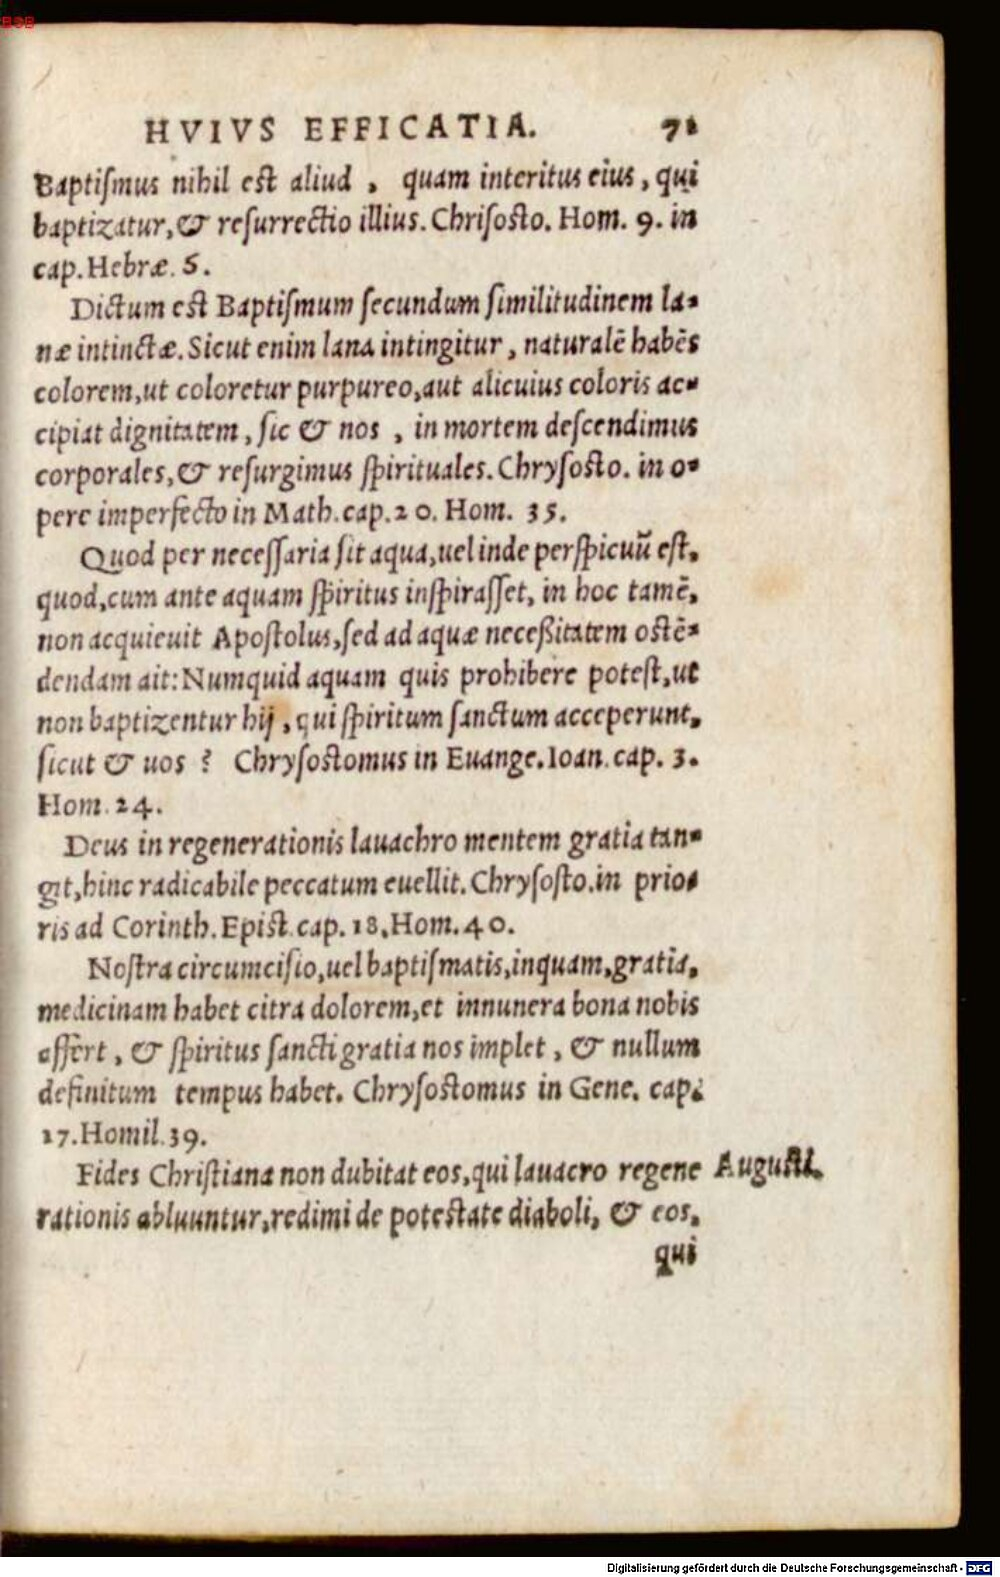 BSB
HVIVS EFFICATIA. 71
Baptiſmus nihil est aliud, quam interitus eius, qui
baptizatur, & reſurrectio illius. Chriſosto. Hom. 9. in
cap. Hebræ. 5.
Dictum est Baptiſmum ſecundum ſimilitudinem la-
næ intinctæ. Sicut enim lana intingitur, naturalē habēs
colorem, ut coloretur purpureo, aut alicuius coloris ac-
cipiat dignitatem, ſic & nos, in mortem deſcendimus
corporales, & reſurgimus ſpirituales. Chryſosto. in o-
pere imperfecto in Math. cap. 20. Hom. 35.
Quod per neceſſaria ſit aqua, uel inde perſpicuū eſt,
quod, cum ante aquam ſpiritus inſpiraſſet, in hoc tamē,
non acquieuit Apoſtolus, ſed ad aquæ neceßitatem ostē-
dendam ait: Numquid aquam quis prohibere poteſt, ut
non baptizentur hij, qui ſpiritum ſanctum acceperunt,
ſicut & uos? Chryſostomus in Euange. Ioan. cap. 3.
Hom. 24.
Deus in regenerationis lauachro mentem gratia tan-
git, hinc radicabile peccatum euellit. Chryſosto. in prio-
ris ad Corinth. Epist. cap. 18. Hom. 40.
Noſtra circumciſio, uel baptiſmatis, inquam, gratia,
medicinam habet citra dolorem, et innunera bona nobis
affert, & ſpiritus ſancti gratia nos implet, & nullum
definitum tempus habet. Chryſostomus in Gene. cap.
17. Homil. 39.
Fides Chriſtiana non dubitat eos, qui lauacro regene
rationis abluuntur, redimi de potestate diaboli, & eos,
Auguſti.
qui
Digitalisierung gefördert durch die Deutsche Forschungsgemeinschaft - DFG